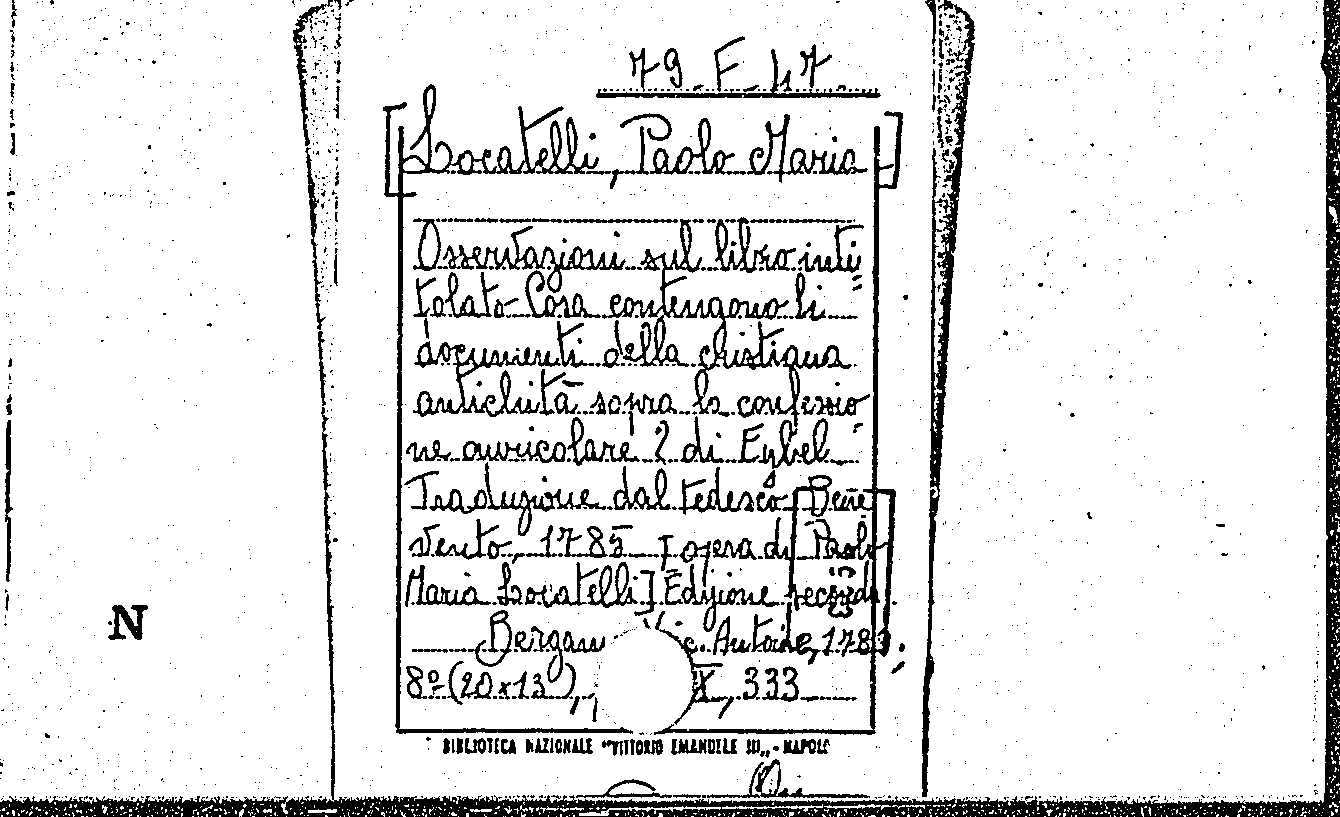 79. F. 47.
[Locatelli, Paolo Maria]
Osservazioni sul libro inti=
tolato Cosa contengono li
documenti della cristiana
antichità sopra la confessio=
ne auricolare? di Eybel.
Traduzione dal tedesco, Bene
vento, 1785 [opera di Paolo
Maria Locatelli] Edizione seconda.
Bergam Antoine, 178
8º (20x13), X, 333
N
BIBLIOTECA NAZIONALE "VITTORIO EMANUELE III" - NAPOLI